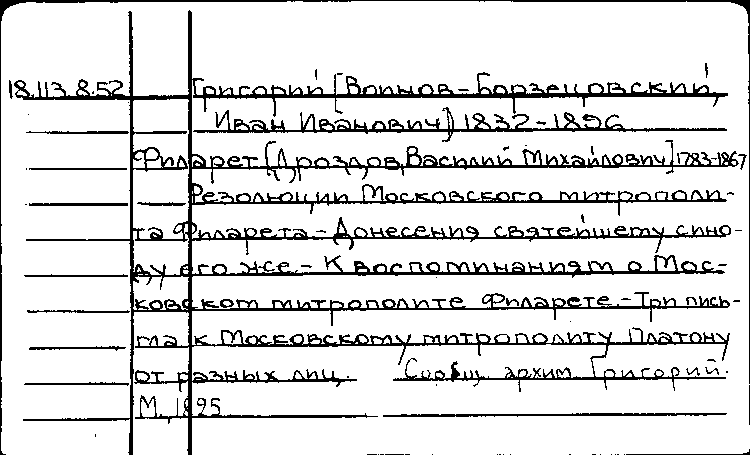 18.113.8.52 Григорий [Воинов-Борзецовский,
Иван Иванович] 1832-1896
Филарет [Дроздов, Василий Михайлович] 1783-1867
Резолюции Московского митрополи-
та Филарета.-Донесения святейшему сино-
ду его же.- К воспоминаниям о Мос-
ковском митрополите Филарете.-Три пись-
ма к Московскому митрополиту Платону
от разных лиц. Сообщ. архим. Григорий.
М., 1895